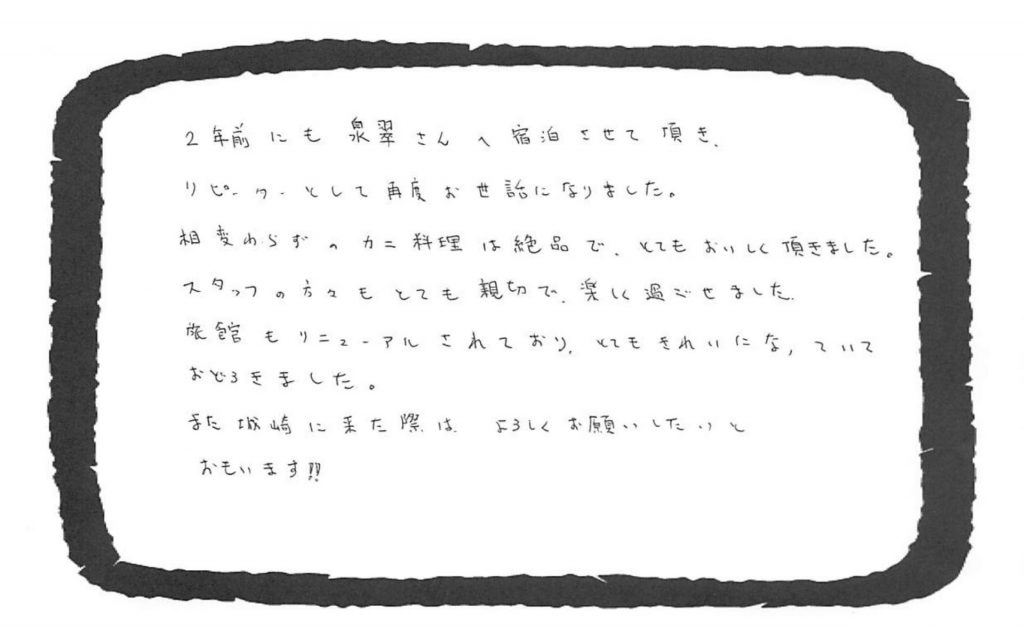 2年前にも泉翠さんへ宿泊させて頂き、
リピーターとして再度お世話になりました。
相変わらずのカニ料理は絶品で、とてもおいしく頂きました。
スタッフの方々もとても親切で、楽しく過ごせました。
旅館もリニューアルされており、とてもきれいになっていて
おどろきました。
また城崎に来た際は よろしくお願いしたいと
おもいます!!